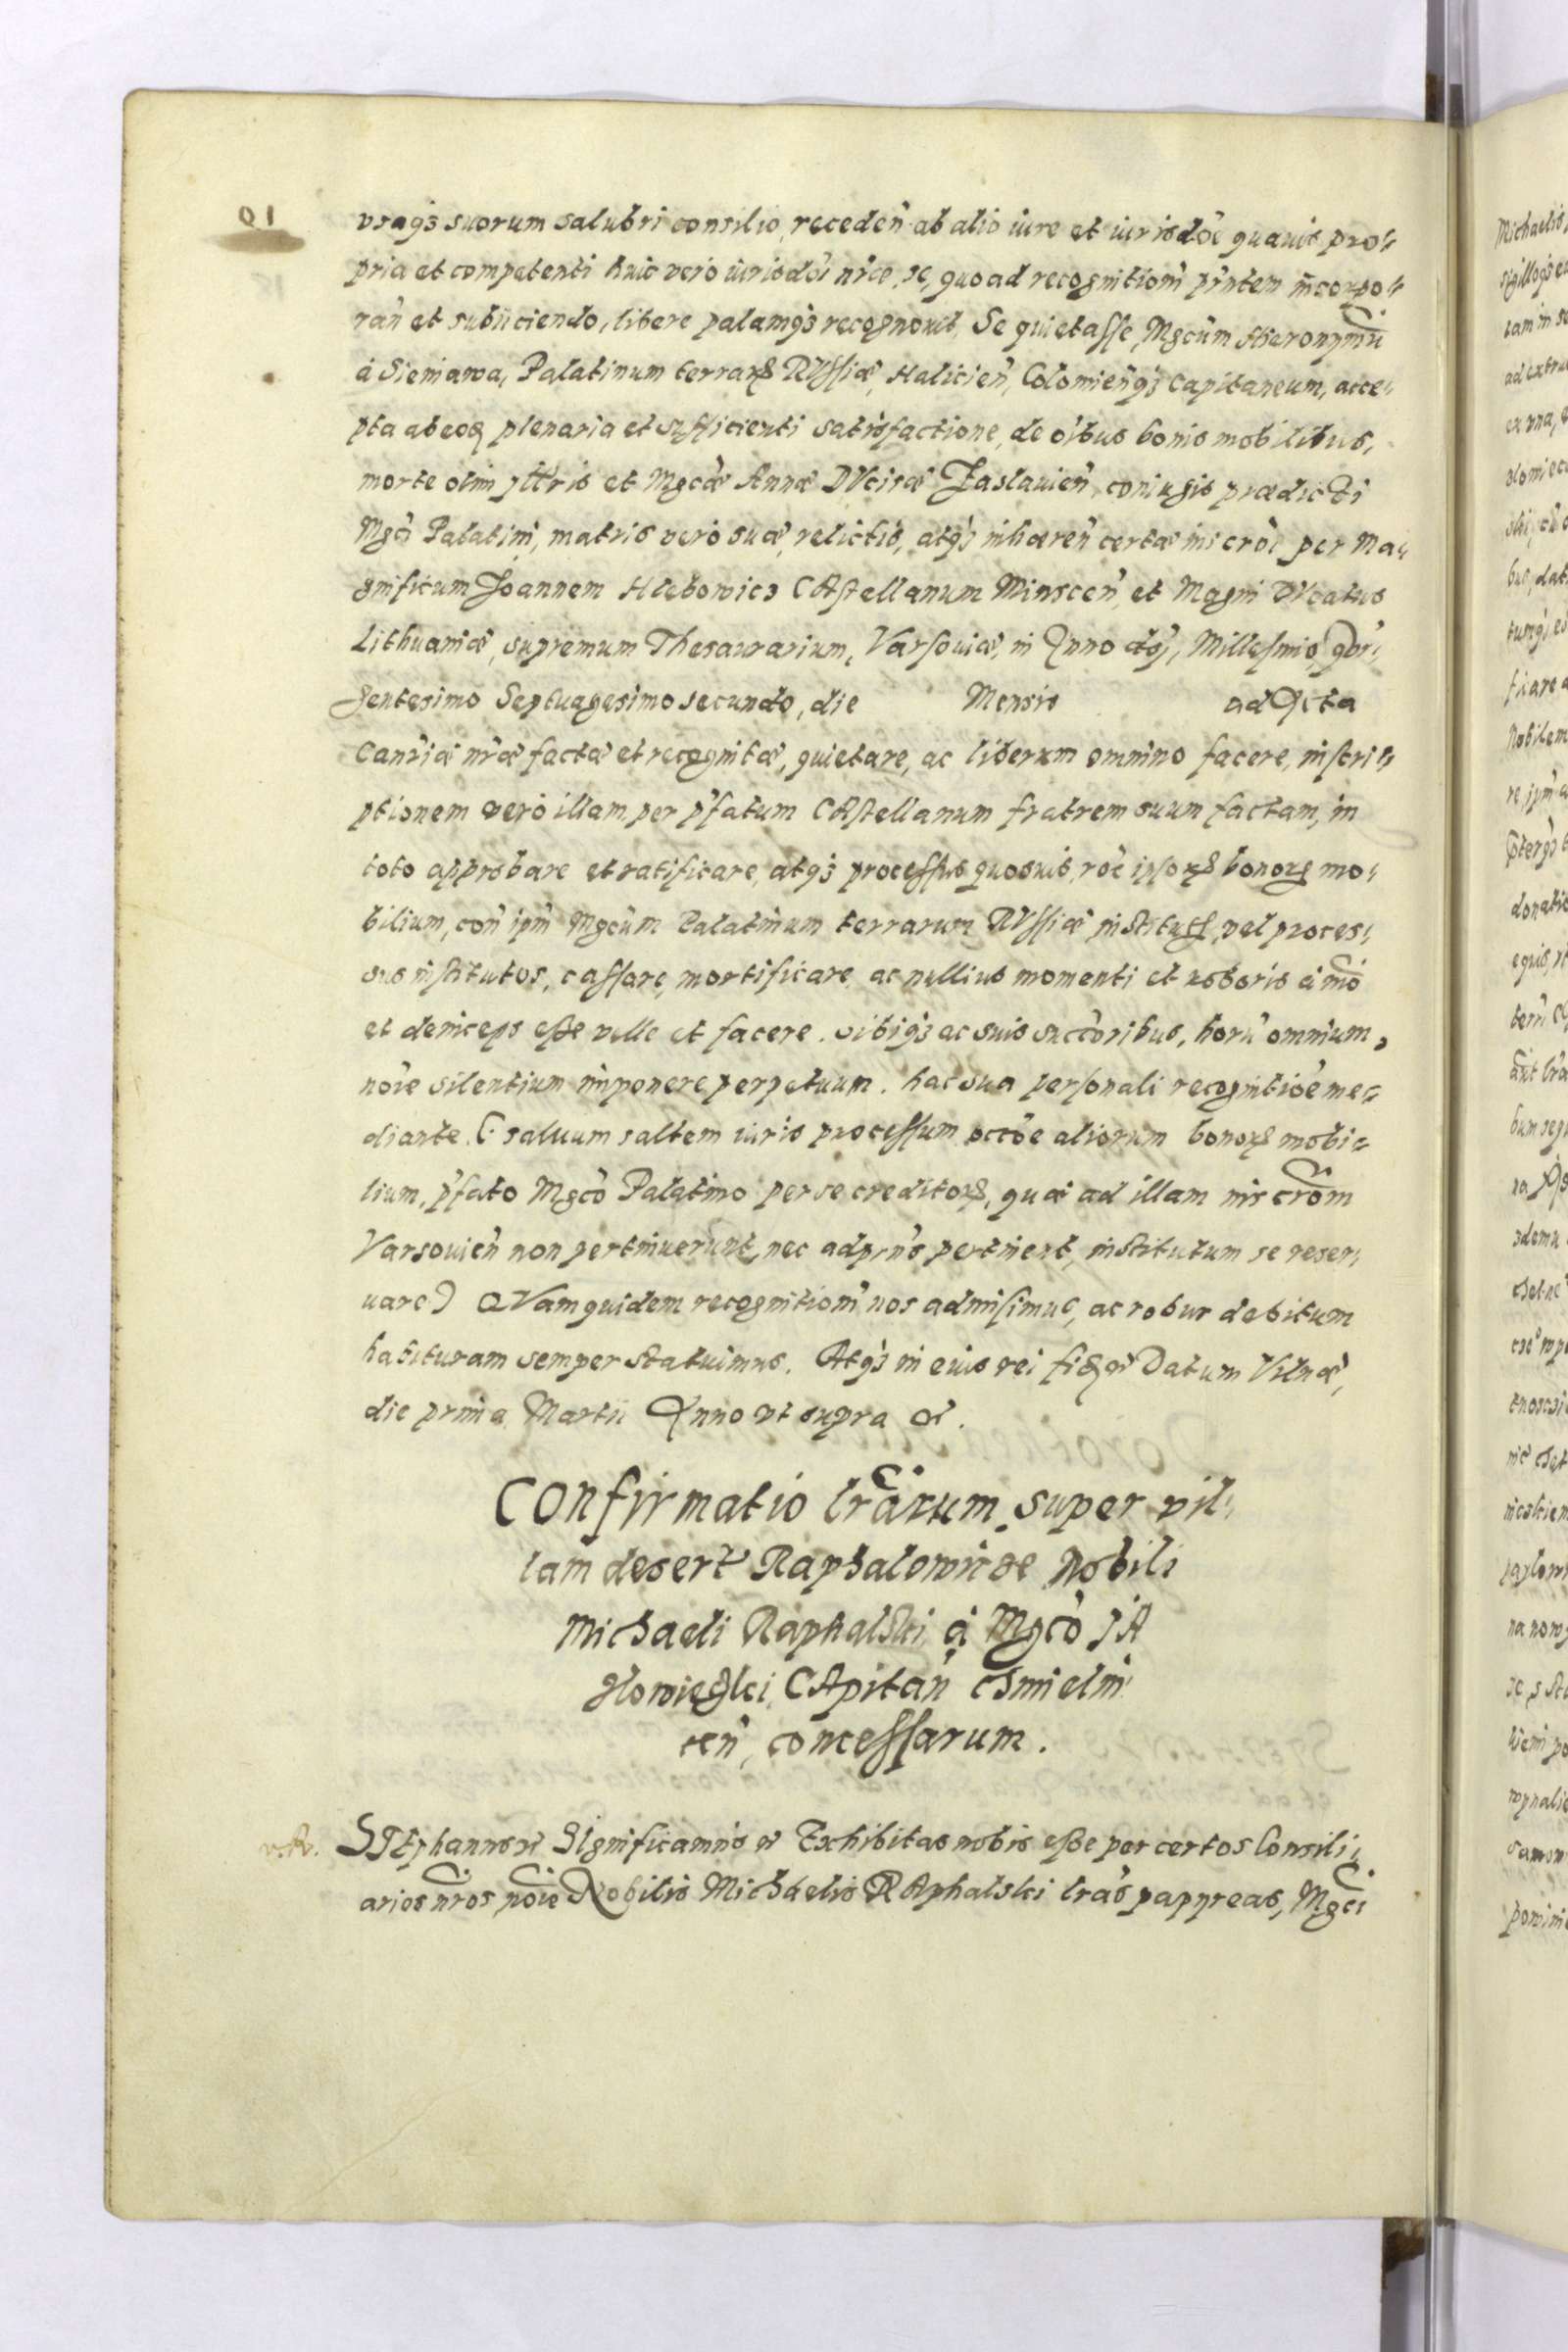 01
vsaq́3 suorum salubri consilio, receden̄ ab alio iure et iurisdõe quauis pro⸗
pria et competenti huic vero iurisdõi nr̃ae, se, quo ad recognitionẽ pr̃ntem incorpo⸗
ran̄ et subiiciendo, libere palamq́3 recognouit, Se quietasse, Mgcũm Hieronymũ
à Sieniawa, Palatinum terrarꝝ RVssiæ, Halicien̄, Colomien̄q́3 Capitaneum, acce⸗
pta ab eoꝗ plenaria et sufficienti satisfactione, de oĩbus bonis mobilibus,
morte olim et Mgcæ̃ Annæ DVcisæ Zaslauien̄, coniugis prædicti
Mgcĩ Palatini, matris vero suæ, relictis, atq́3 inhæren̄ certæ inscrõi per Ma⸗
gnificum Joannem Hlebowicz CAstellanum Minscen̄, et Magni DVcatus
Lithuaniæ, supremum Thesaurarium, Varsouiæ, in Anno dñj, Millesimo, qui⸗
gentesimo Septuagesimo secundo, die Mensis ad Acta
Canr̃iæ nr̃æ factæ et recognitæ, quietare, ac liberum omnino facere, inscri⸗
ptionem vero illam, per p̃fatum CAstellanum fratrem suum factam, in
toto approbare et ratificare, atq́3 processus quosuis, rõe ipsorꝝ bonorꝝ mo⸗
bilium, con̄ ipm̃ Mgcũm Palatinum terrarum RVssiæ vel proces⸗
sus institutos, cassare, mortificare, ac nullius momenti et roboris à mõ
et deinceps esse velle et facere. sibiq́3 ac suis succ̃oribus, horũ omnium,
nõie silentium imponere perpetuum. hac sua personali recognitiõe me⸗
diante. ( saluum saltem iuris processum occõe aliorum bonorꝝ mobi⸗
lium, p̃fato Mgcõ Palatino per se creditorꝝ, quæ ad illam inscrõm
Varsouien̄ non pertinuerunt, nec ad prñs pertinent, institutum se reser⸗
uare) QVam quidem recognitionẽ nos admisimus, ac robur debitum
habituram semper statuimus. Atq́3 in eius rei fidem &c̃ Datum Vilnæ,
die prima Martii Anno vt supra &c̃.
COnfirmatio lrãrum super vil⸗
lam desert̃ Raphalowicze Nobili
Michaeli Raphalski à Mgcõ JA
Slowieski, CApitan̄ Chmielni⸗
cen̄, concessarum.
v. R. STEphannus &c̃ SIgnificamus &c̃ Exhibitas nobis esse per certos Consili⸗
arios nr̃os nõie Nobilis Michaelis RAphalski lrãs papyreas, Mgcĩ